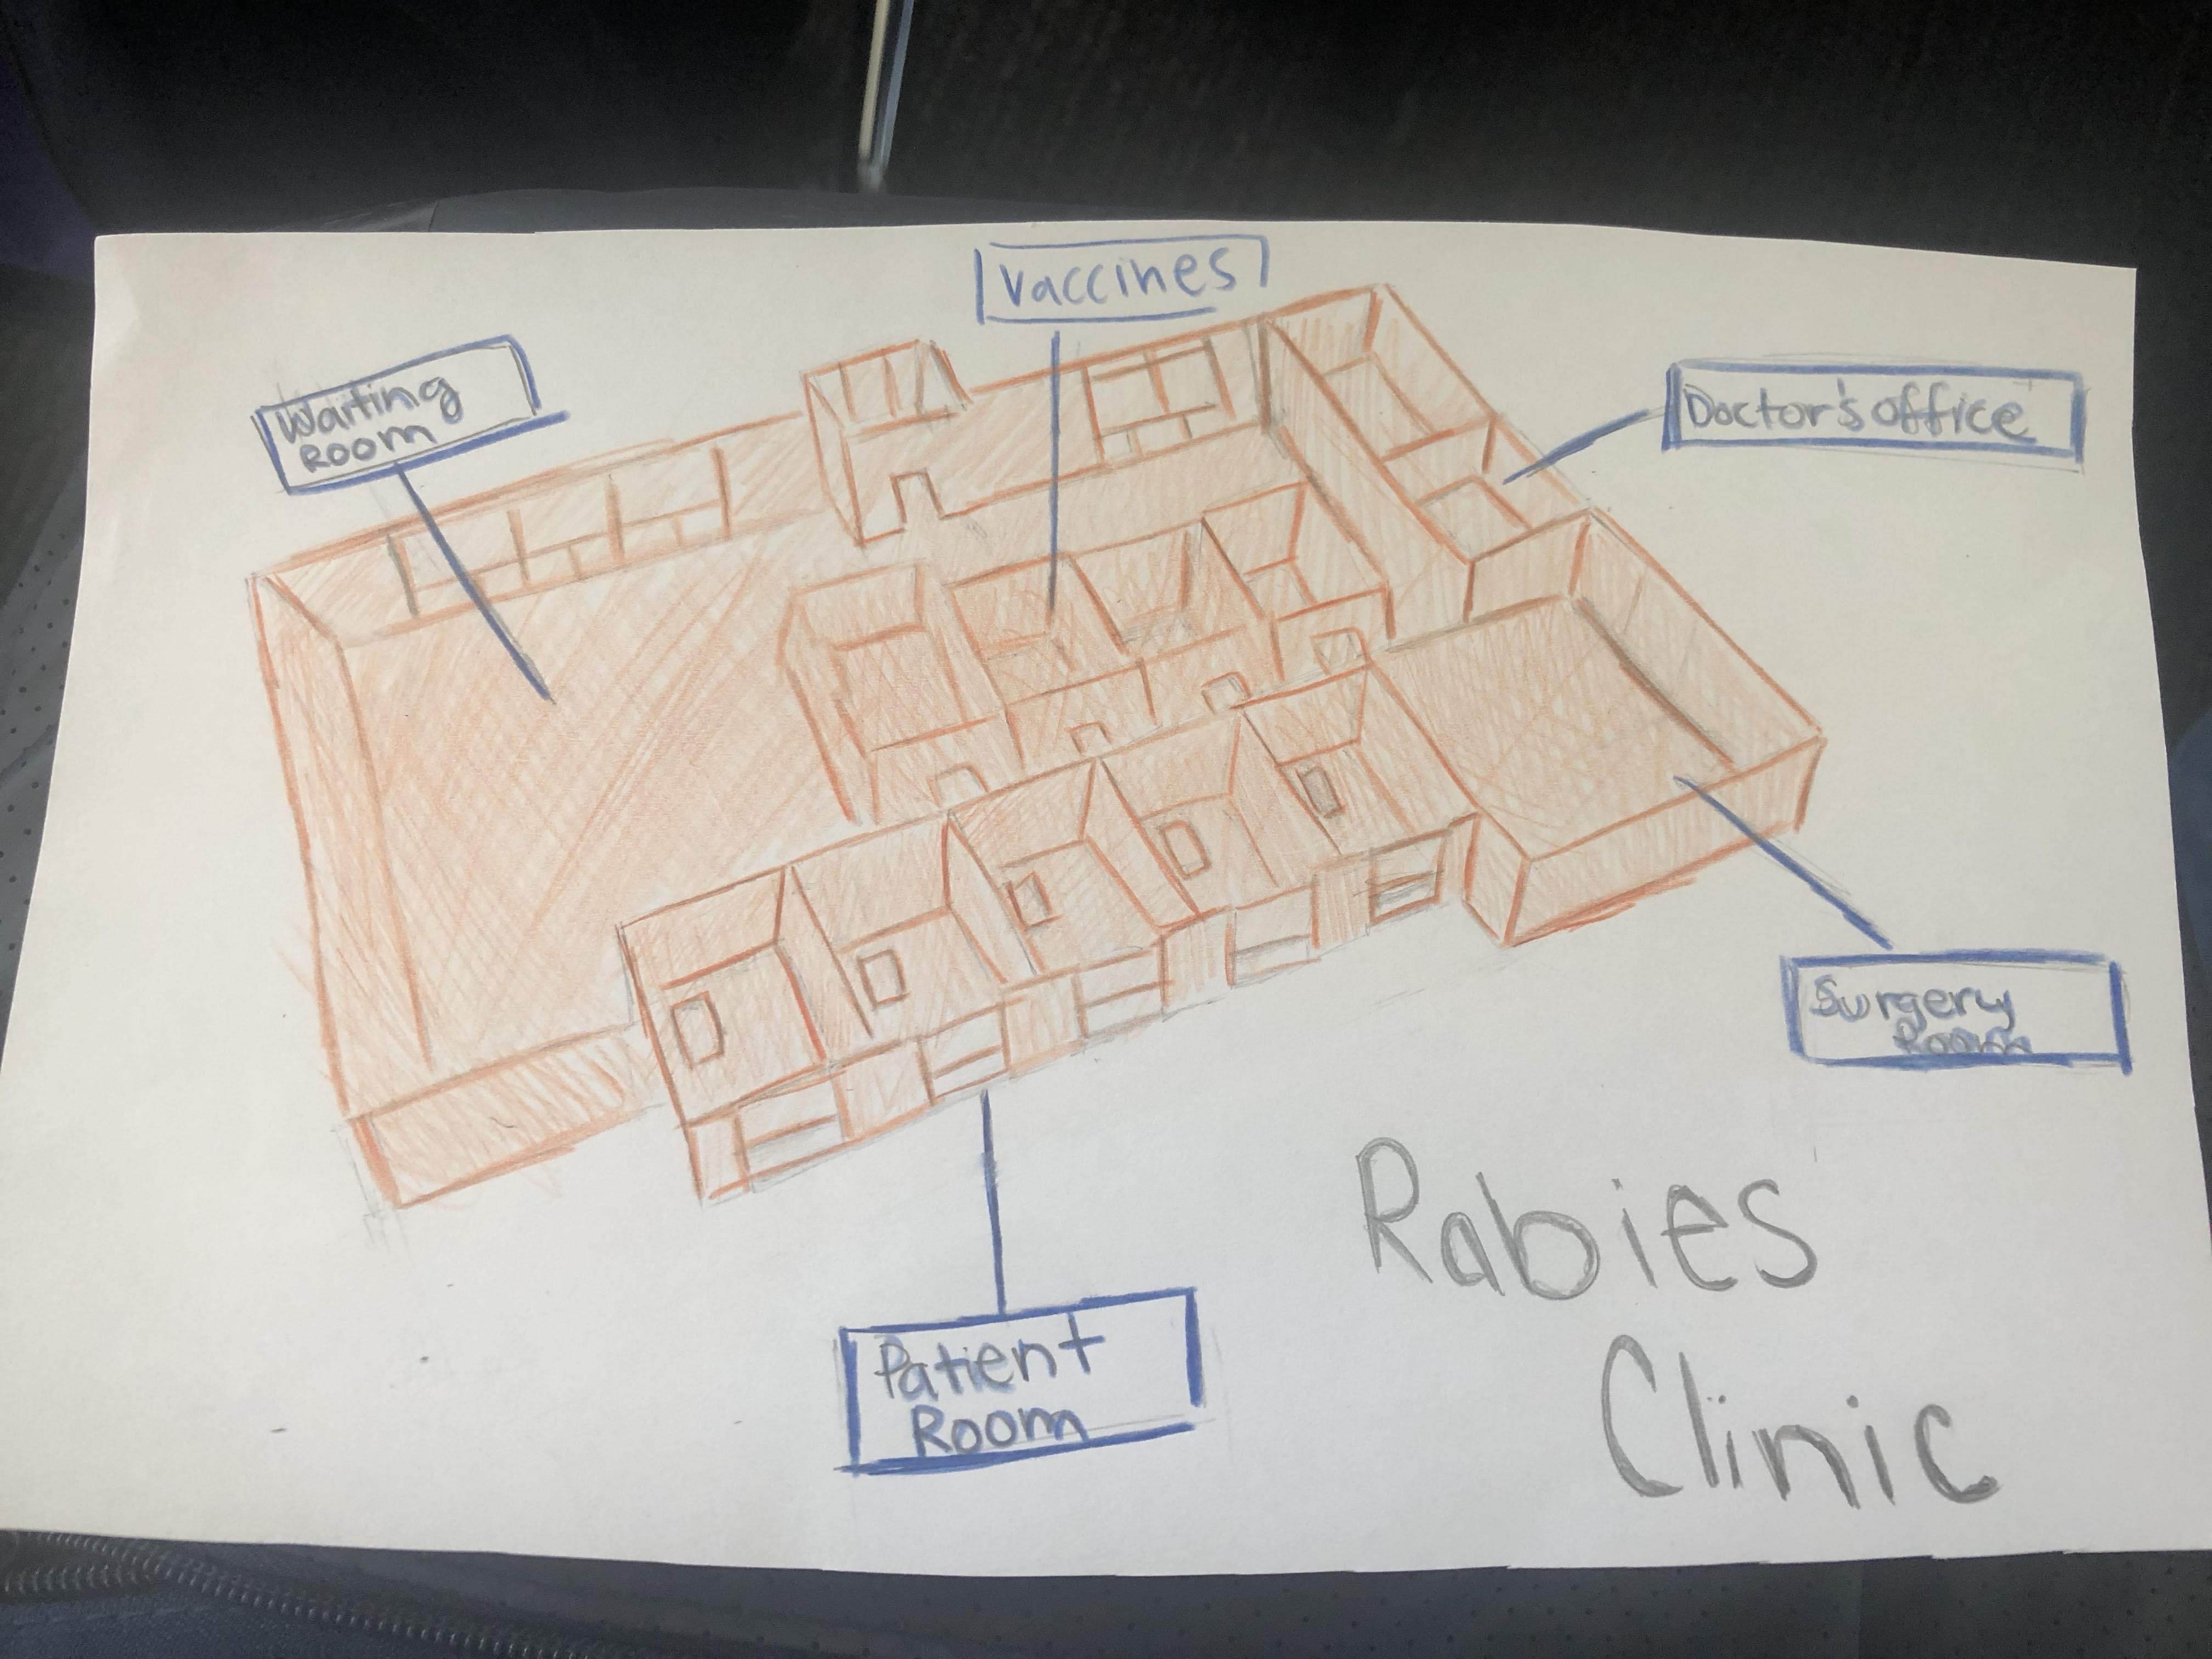 Vaccines
Waiting
Room
Doctor's office
Surgery
Room
Patient
Room
Rabies
Clinic